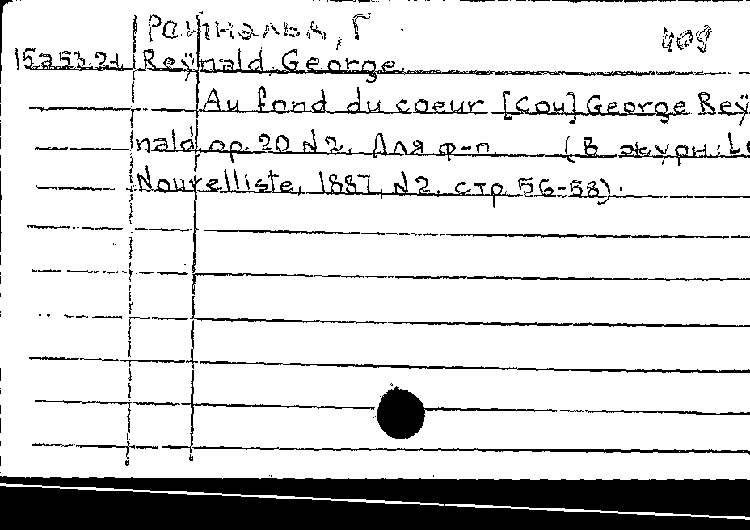 Райнальд, Г
408
15а53.21 Reÿnald, George.
Au fond du coeur [Сои] George Reÿ
nald, op. 20 N2. Для ф-п. (В журн.: Le
Nouvelliste, 1887, N2. стр. 56-58).